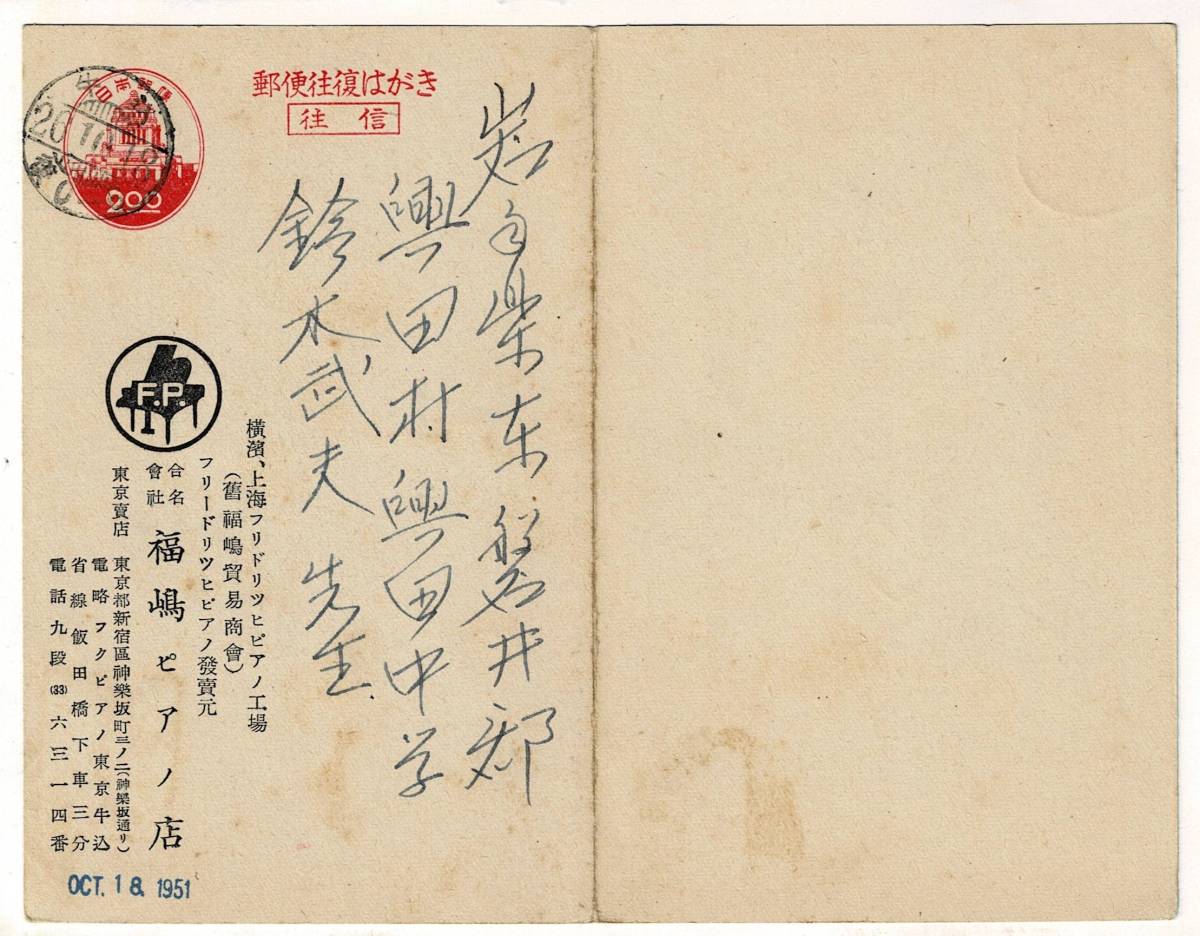 郵便往復はがき
往信
日本郵便
2.00
26.10.18
岩手県東磐井郡
興田村興田中学
鈴木武夫先生
横濱、上海フリドリツヒピアノ工場
(舊福嶋貿易商會)
フリードリツヒピアノ發賣元
合名會社 福嶋ピアノ店
東京賣店 東京都新宿區神樂坂町三ノ二(神樂坂通リ)
電略フクピアノ東京牛込
省線飯田橋下車三分
電話九段(33)六三一四番
F.P.
OCT. 18. 1951